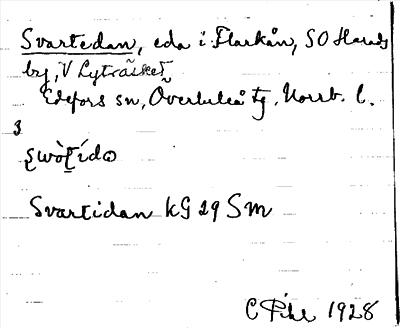 Svartedan, eda i Flarkån, SO Harads
by, V Lyträsket
Edefors sn, Överluleå tg. Norrb. l.
3
Svartidan KG 29 SM
C Pihl 1928